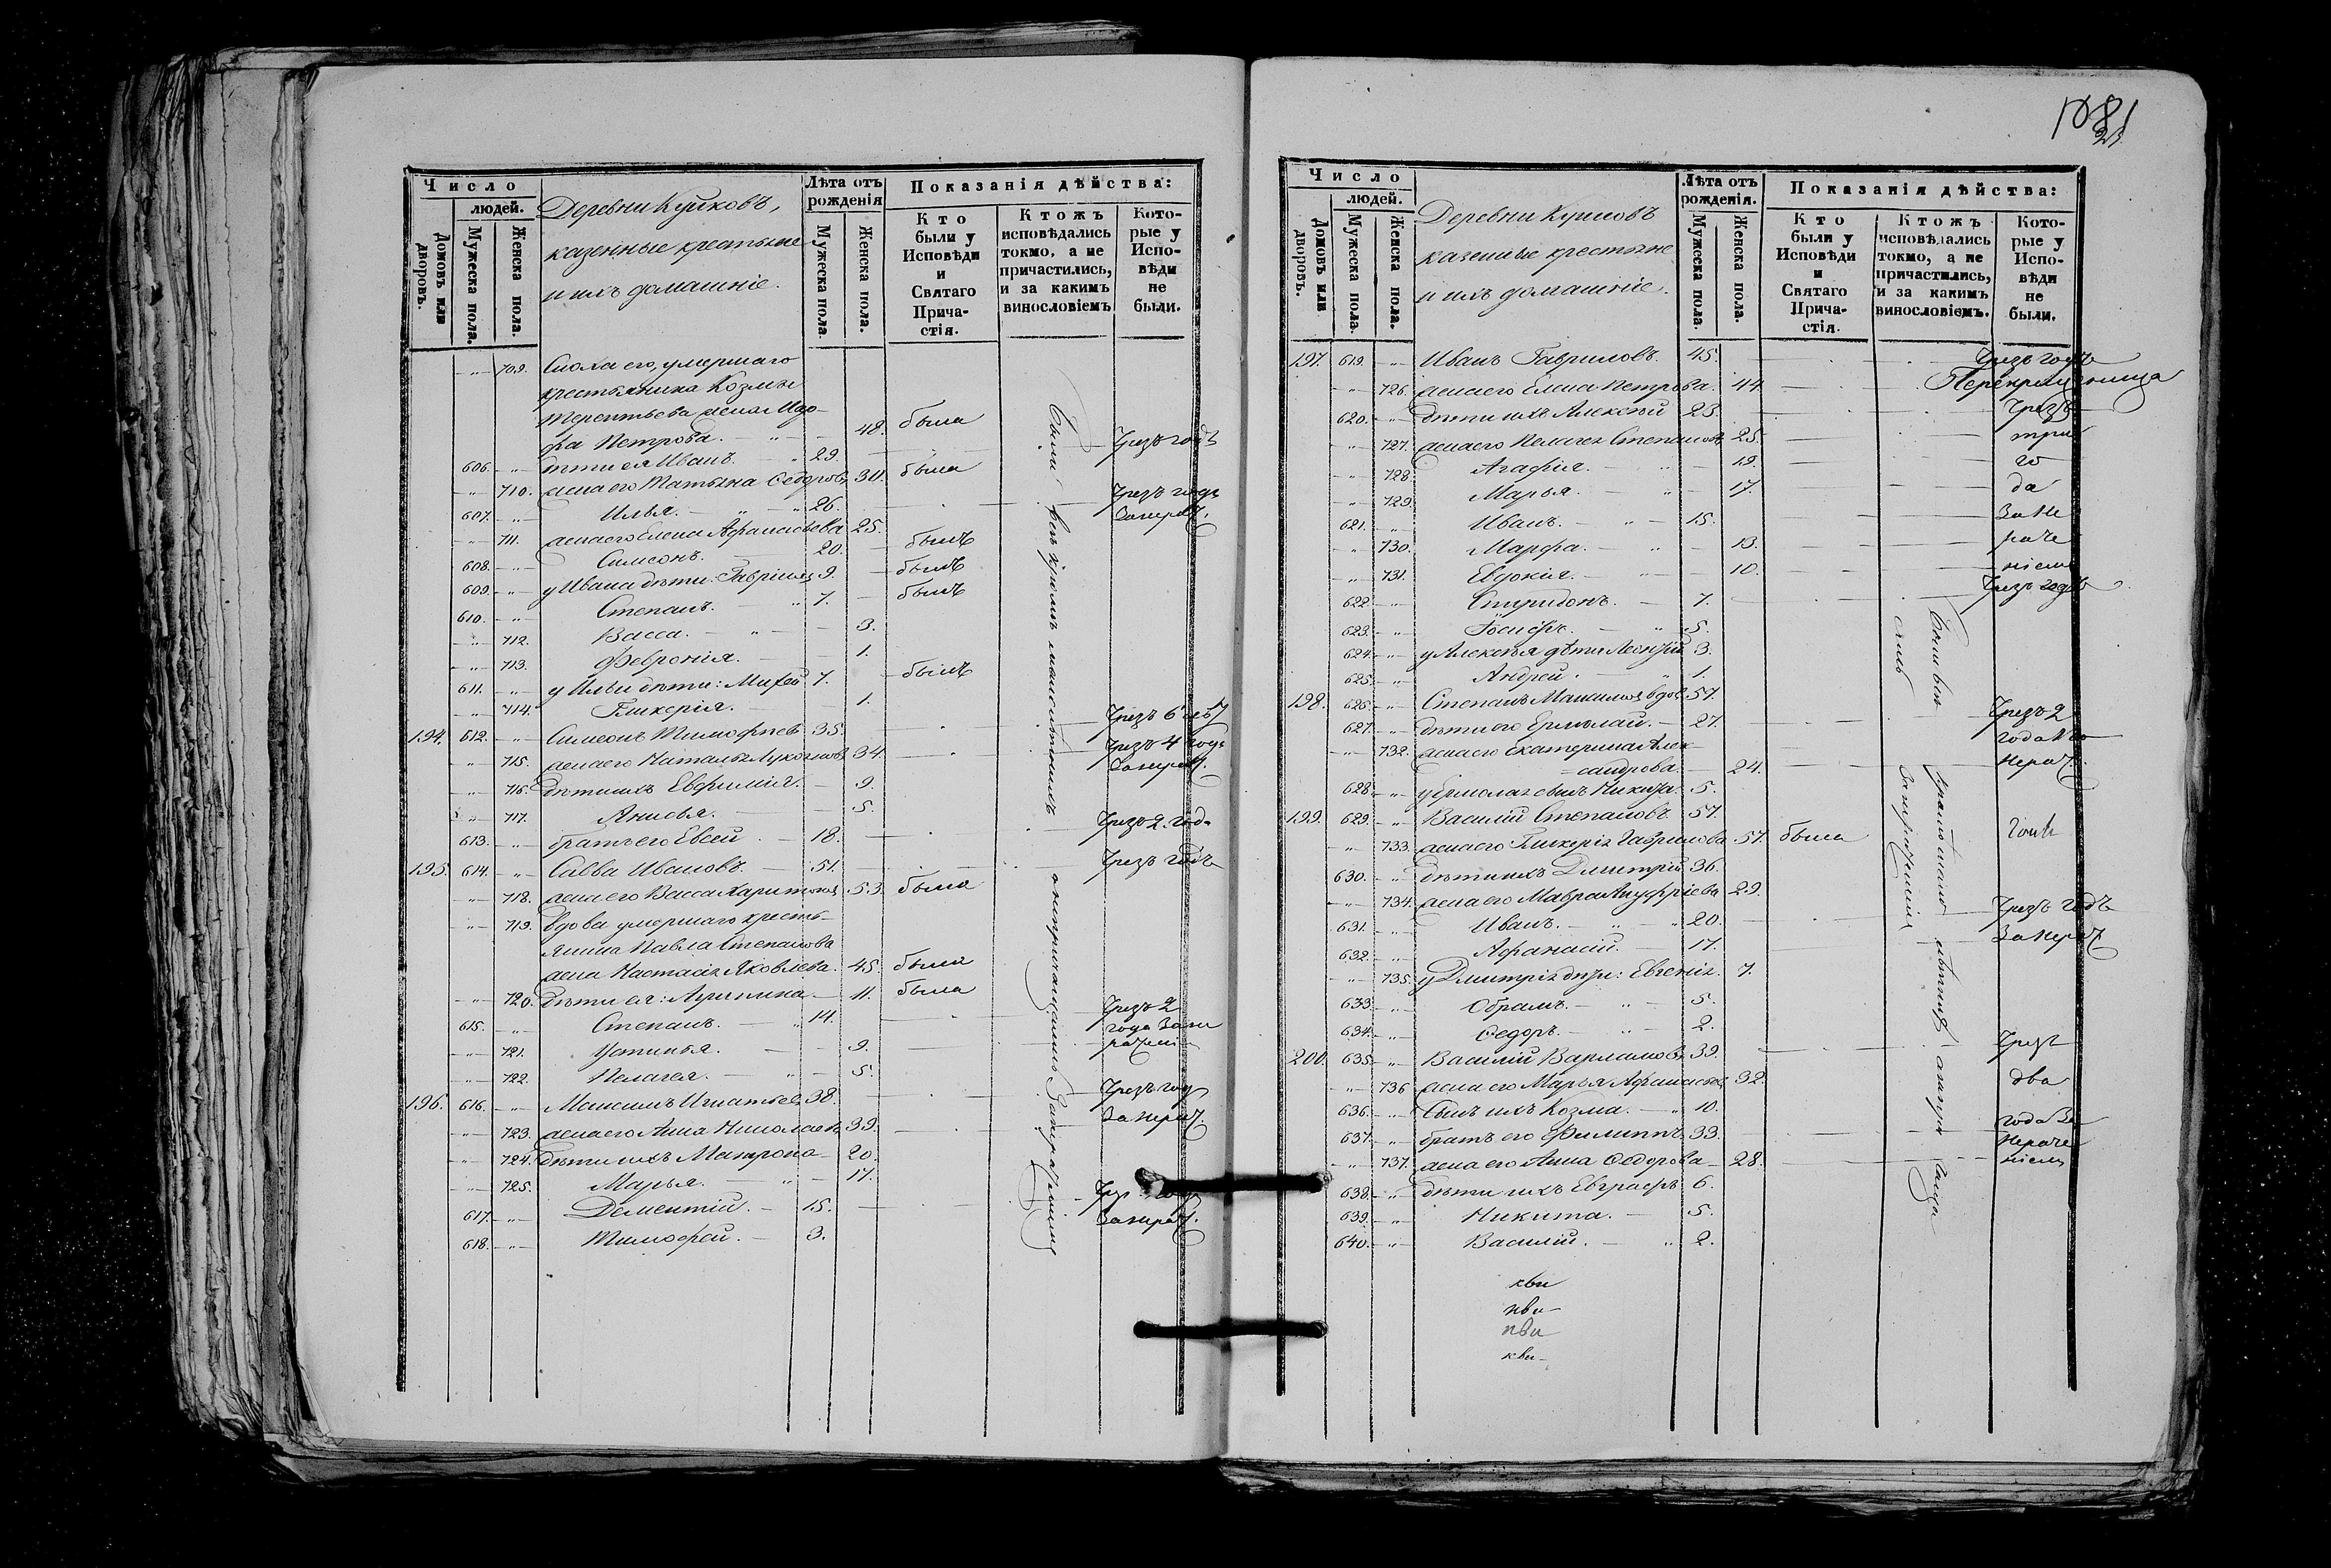 Число
людей.
Домовъ или дворовъ.
Мужеска пола.
Женска пола.
Деревни Куиковъ,
казенные крестьяне
и ихъ домашніе.
Лѣта отъ рожденія
Мужеска пола.
Женска пола.
Показанія дѣйства:
Кто были у Исповѣди и Святаго Прича-стія.
Ктожъ исповѣдались токмо, а не причастились, и за какимъ винословіемъ
Кото-рые у Испо-вѣди не были.
" 709. Сноха его, умершаго
крестьянина Козмы
Терентьева жена Мар-
фа Петрова. 48. была
606. " дѣти ея Иванъ. 29. Чрезъ годъ
" 710. жена его Татьяна Ѳедорова 30. была
607. " Илья. 26. Чрезъ годъ
" 711. жена его Елена Афанасьева 25. Занерач.
608. " Симеонъ. 20. былъ
609. " у Ивана дѣти: Гавріилъ 9. былъ
610. " Степанъ. 7. былъ
" 712. Васса. 3.
" 713. Феvронія. 1.
611. " у Ильи дѣти: Михей 7. былъ
" 714. Гликерія. 1.
194. 612. " Симеонъ Тимофѣев 35. Чрезъ 6 лѣт
" 715. жена его Наталья 34. Чрезъ 4 года
Занерач.
" 716. дѣти ихъ Евфимія. 9.
" 717. Анисья. 5.
613. " братъ его Евсей 18. Чрезъ 2 года
195. 614. " Савва Ивановъ. 51. Чрезъ годъ
" 718. жена его Васса Харитонова 53. была
" 719. Вдова умершаго кресть-
янина Павла Степанова
жена Настасія Яковлева. 45. была
" 720. дѣти ея: Агрипина 11. была
615. " Степанъ. 14. Чрезъ 2
года Зане
" 721. Устинья. 9. рачені
" 722. Пелагея. 5.
196. 616. " Максимъ Игнатьев 38. Чрезъ год
" 723. жена его Анна Николаева 39. Занерач.
" 724. дѣти ихъ Матрона 20.
" 725. Марья. 17.
617. " Дементій. 15. Чрезъ
Занерач.
618. " Тимофей. 3.
Были
малолѣтныхъ
не
1081
Число
людей.
Домовъ или дворовъ.
Мужеска пола.
Женска пола.
Деревни Куиковъ
казенные крестьяне
и ихъ домашніе.
Лѣта отъ рожденія.
Мужеска пола.
Женска пола.
Показанія дѣйства:
Кто были у Исповѣди и Святаго Прича-стія.
Ктожъ исповѣдались токмо, а не причастились, и за какимъ винословіемъ.
Кото-рые у Испо-вѣди не были.
197. 619. " Иванъ Гавриловъ. 45. Чрезъ годъ
" 726. жена его Елена Петрова. 44.
620. " дѣти ихъ Алексѣй 23. Чрезъ
" 727. жена его Пелагея Степанова 25. три
" 728. Агафія. 19. го
" 729. Марья. 17. да
621. " Иванъ. 15. За не
" 730. Марфа. 13. раче
" 731. Евдокія. 10. ніемъ
622. " Спиридонъ. 7. Чрезъ годъ
623. " Іосифъ. 5.
624. " у Алексѣя дѣти Леонтій 3.
625. " Андрей. 1.
198. 626. " Степанъ Максимов вдов 57.
627. " дѣти его Ермолай. 27. Чрезъ 2
" 732. жена его Екатерина Алек- года По
сандрова. 24. Нерач.
628. " у Ермолая сынъ Никита 5.
199. 629. " Василій Степановъ 57.
" 733. жена его Гликерія Гаврилова 57. была
630. " дѣти ихъ Дмитрій 36.
" 734. жена его Мавра Ануфріева 29.
631. " Иванъ. 20. Чрезъ годъ
632. " Афанасій. 17. Занерач
" 735. у Дмитрія дѣти: Евгенія. 7.
633. " Обрамъ. 5.
634. " Ѳедоръ. 2.
200. 635. " Василій Варламовъ 39. Чрезъ
" 736 жена его Марья Афанасьева 32. два
636. " сынъ ихъ Козма. 10.
637. " братъ его Филиппъ 33. года За
" 737. жена его Анна Ѳедорова 28. нераче
ніемъ
638. " дѣти ихъ Евграфъ 6.
639. " Никита. 5.
640. " Василій. 2.
Были